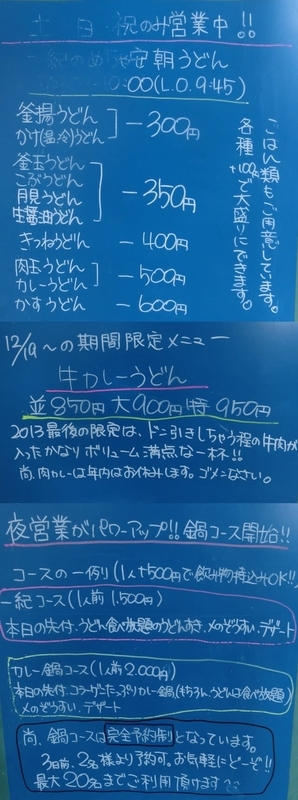 土日祝のみ営業中!!
一紀のめちゃ安朝うどん
10:00(L.O.9:45)
釜揚うどん
かけ(温・冷)うどん
]ー300円
釜玉うどん
こぶうどん
月見うどん
生醤油うどん
]ー350円
きつねうどん ー400円
肉玉うどん
カレーうどん
]ー500円
かすうどん ー600円
ごはん類もご用意しています。
各種+100円で大盛りにできます。
12/9〜の期間限定メニュー
牛カレーうどん
並850円大900円特950円
2013最後の限定は、ドン引きしちゃう程の牛肉が
入ったかなりボリューム満点な一杯!!
尚、肉カレーは年内はお休みします。ゴメンなさい。
夜営業がパワーアップ!!鍋コース開始!!
コースの一例り(1人+500円で飲み物持込みOK!!
一紀コース(1人前1,500円)
本日の先付、うどん食べ放題のうどんすき、〆のぞうすい、デザート
カレー鍋コース(1人前2.000円)
本日の先付、コラーゲンたっぷりカレー鍋(もちろん、うどんは食べ放題)
〆のぞうすい、デザート
尚、鍋コースは完全予約制となっています。
3日前、2名様より予約可。お気軽にどーぞ!!
最大20名までご利用頂けます